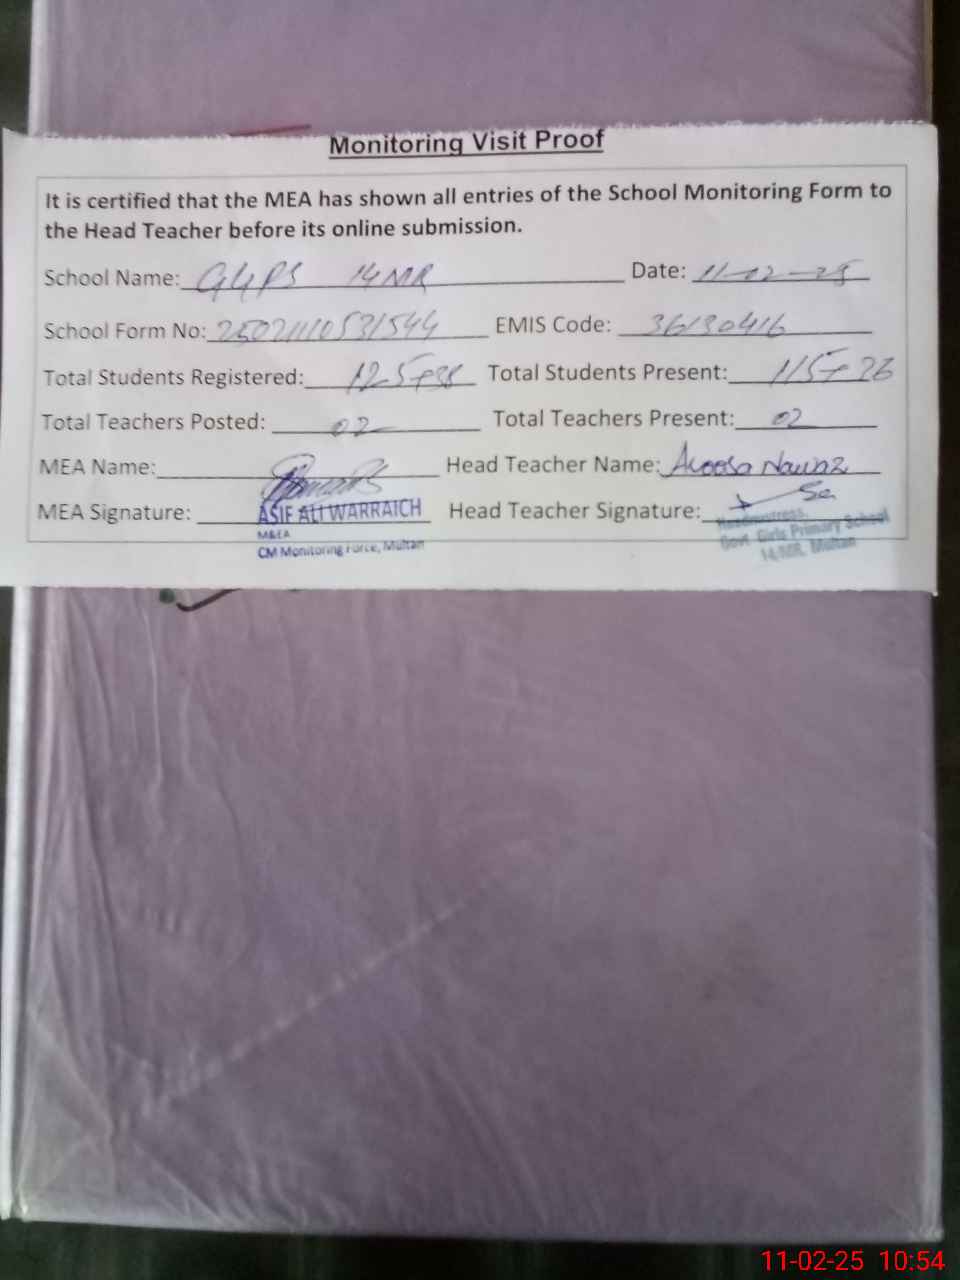 Monitoring Visit Proof
It is certified that the MEA has shown all entries of the School Monitoring Form to
the Head Teacher before its online submission.
School Name: GGPS 14MR Date: 11-02-25
School Form No: 25021110531544 EMIS Code: 36130416
Total Students Registered: 125+38 Total Students Present: 115+26
Total Teachers Posted: 02 Total Teachers Present: 02
MEA Name: Head Teacher Name: Nawaz
MEA Signature: ASIF ALI WARRAICH Head Teacher Signature:
M&EA
CM Monitoring Force, Multan
Headmistress,
Govt. Girls Primary School
14/MR, Multan
11-02-25 10:54